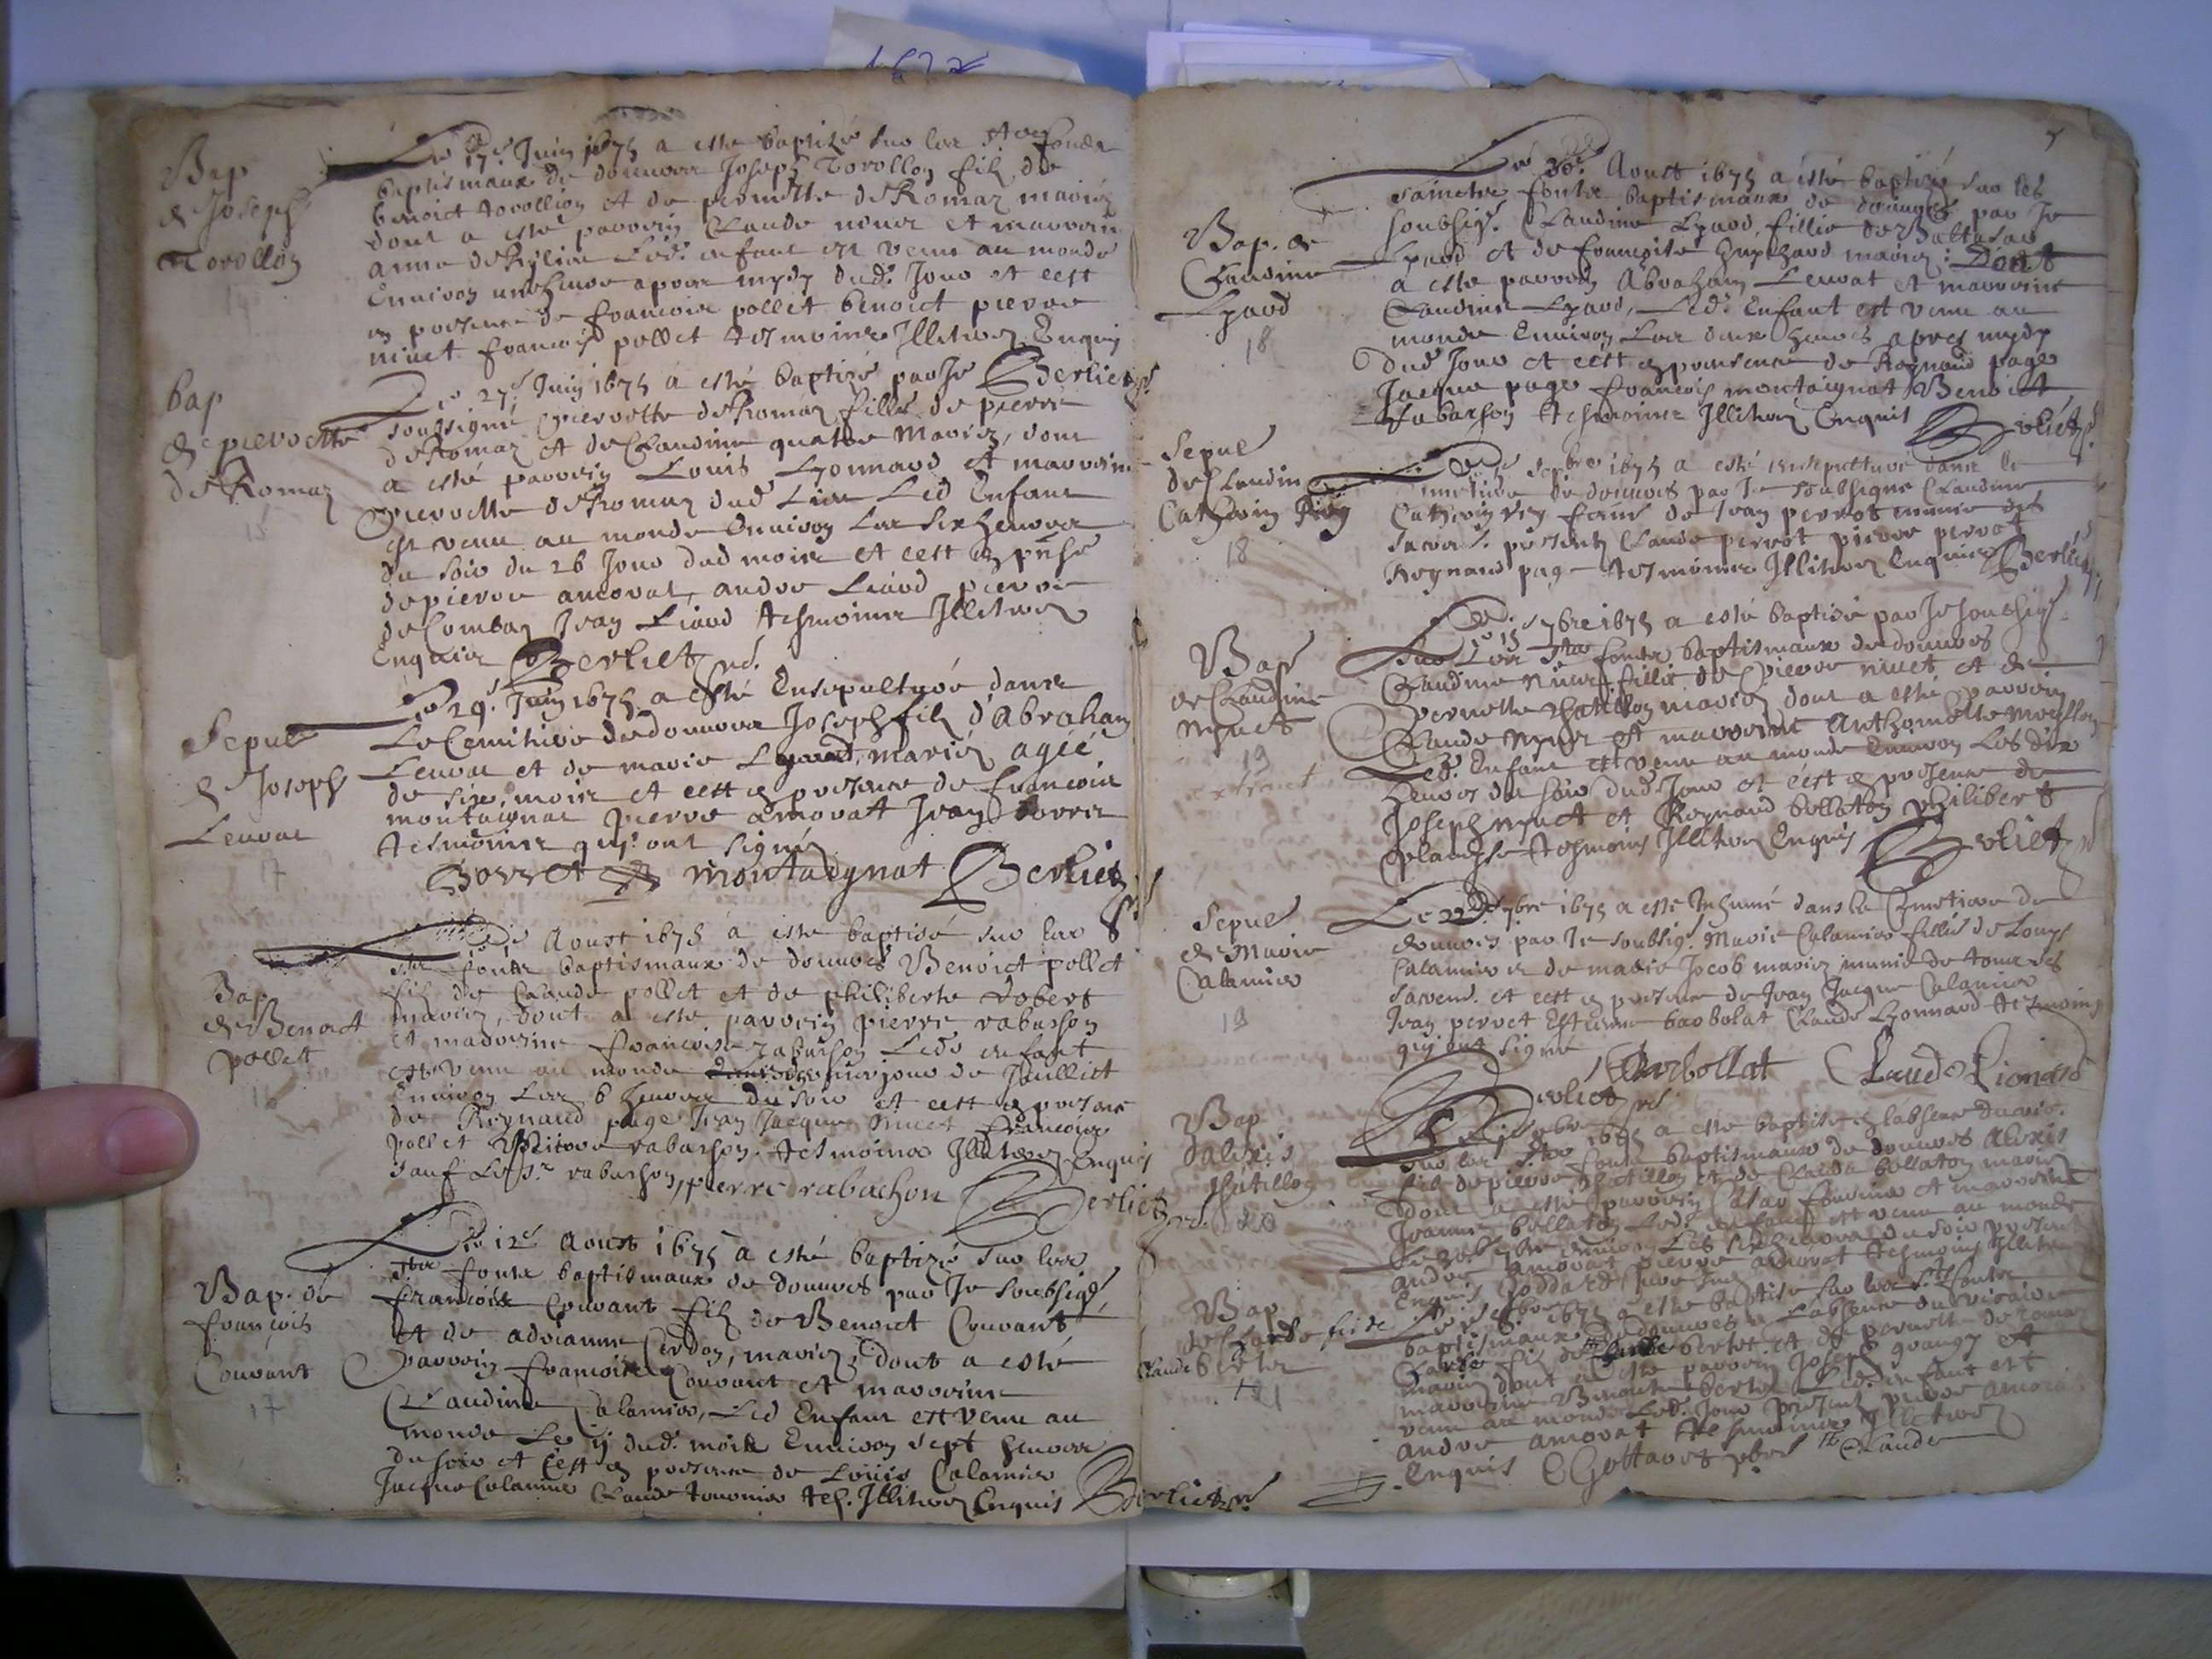 1672
Bap
de Joseph
Torollon
14
Le 17e Juin 1675 a esté baptizé sur les stes fonds
baptismaux de douures Joseph Torollon filz de
benoict torollion et de pernette deRomaz mariéz
dont a esté parrein Claude niuet et marreine
anne deRilieu Led. enfant est venu au monde
Enuiron une heure apres mydy dud. Jour et cest
en presence de francois pollet benoict pierre
niuet francois pollet tesmoins Illitrez Enquis
Berliet
bap
de pierrette
deRomaz
15
Le 27e Juin 1675 a esté baptizé par Je
soussigné pierrette deRomaz fille de pierre
deRomaz et de Claudine quattre Mariez, dont
a esté parrein Louis Lyonnard et marreine
pierrette deRomaz dud Lieu Led Enfant
est venu au monde Enuiron Les six heures
du soir du 26 Jour dud mois et cest en pnse
de pierre amorat, andre Liard pierre
deCombaz Jean Liard tesmoins Illitrez
Enquis Berliet
Sepul
de Joseph
Leurat
17
Le 29. Juin 1675 a esté Ensepulturé dans
Le Cemitiere de douures Joseph filz d'Abraham
Leurat et de marie Lyard, mariéz agié
de six mois et cest en presence de francois
montaignat pierre amorat Jean borret
tesmoins quj ont signé
Borret montaignat Berliet
Bap
de Benoict
pollet
16
Le Aoust 1675 a esté baptisé sur les
stes fonts baptismaux de douures Benoict pollet
filz de Claude pollet et de philiberte Robert
mariez, dont a esté parrein pierre rabasson
et madreine francoise rabasson Led. enfant
est venu au monde jour de Juilliet
Enuiron Les 6 heures du soir et cest en presence
de Reynaud page Jean Jacques niuet francois
pollet pierre rabasson tesmoins Illitrez Enquis
sauf Le sr rabasson, pierre rabachon Berliet
Bap. de
francois
Couuant
17
Le 12e Aoust 1675 a esté baptizé sur les
stes fonts baptismaux de douures par Je soubsigé
francois Couuant filz de Benoict Couuant
et de adrianne Cerdon, mariez, dont a esté
parrein francois Couuant et marreine
Claudine Calamier, Led Enfant est venu au
monde Le ij dud. mois Enuiron sept heures
du soir et cest en presence de Louis Calamier
Jacque Calamier Claude tournier tes. Illitrez Enquis Berliet
Bap. de
Claudine
Lyard
18
Le 30e Aoust 1675 a ésté baptizé sur les
sainctes fonts baptismaux de douures par Je
soubsigé. Claudine Lyard, fillie de Baltasard
Lyard et de francoise mariez: Dont
a esté parrein Abraham Leurat et marreine
Claudine Lyard, Led. Enfant est venu au
monde Enuiron Les deux heures apres mydy
dud Jour et cest en presence de Reynaud page
Jacque page francois montaignat Benoict
rabasson tesmoins Illitrez Enquis Berliet
Sepul
de Claudin
Catherin Rey
18
Le Sepbre 1675 a esté ensepulturé dans le
cimetiere de douures par Je soubsigné Claudine
Catherin Rey feme de Jean perrot munie des
sacres. presents Claude perrot pierre perrot
Reynaud page tesmoins Illitrez Enquis Berliet
Bap
de Claudine
Nyuet
19
extraict
Le 15 7bre 1675 a esté baptisé par Je soubsigé
sur Les stes fonts baptismaux de douures
Claudine niuet fillie de Pierre niuet et de
pernette chatillon mariez dont a esté parrein
Claude Nyuet et marreine Anthoinette
Led. Enfant est venu au monde Enuiron Les dix
heures du soir dud Jour et cest en presence de
Joseph nyuet et Reynaud bollaton philibert
tesmoins Illitrez Enquis Berliet
Sepul
de Marie
Calamier
19
Le 22e 7bre 1675 a esté Inhumé dans le Cimetiere de
douures par Je soubsigé. Marie Calamier fillie de Louys
Calamier et de marie Jocob mariez munie de tous ses
sacrem. et cest en presence de Jean Jacque Calamier
Jean perret Estienne barbolat Claude Lyonnard tesmoins
quj ont signé
Berliet Barbollat Claude Lionard
Bap
dalexis
chatillon
20
Le 7bre 1675 a esté baptisé en labsence du vic.
sur les stes fonts baptismaux de douures Alexis
filz de pierre chatillon et de Clauda bollaton mariez
dont a esté parrein et marreine
Jeanne bollaton Led. enfant est venu au monde
Le 20e 7bre enuiron Les six heures du soir present
andre amorat pierre amorat tesmoins Illitrez
Enquis
Bap
de Claude fils de
Claude bertet
21
Le 8bre 1675 a esté baptisé sur les s.ts fonts
baptismaux de douures en labsence du vicaire
Claude filz de Claude bertet et de pernette deromaz
mariez dont a esté parrein Joseph et
marreine Benoite bertet Led. enfant est
venu au monde Led. Jour present pierre amorat
andre amorat tesmoins Illitrez
Enquis Claude